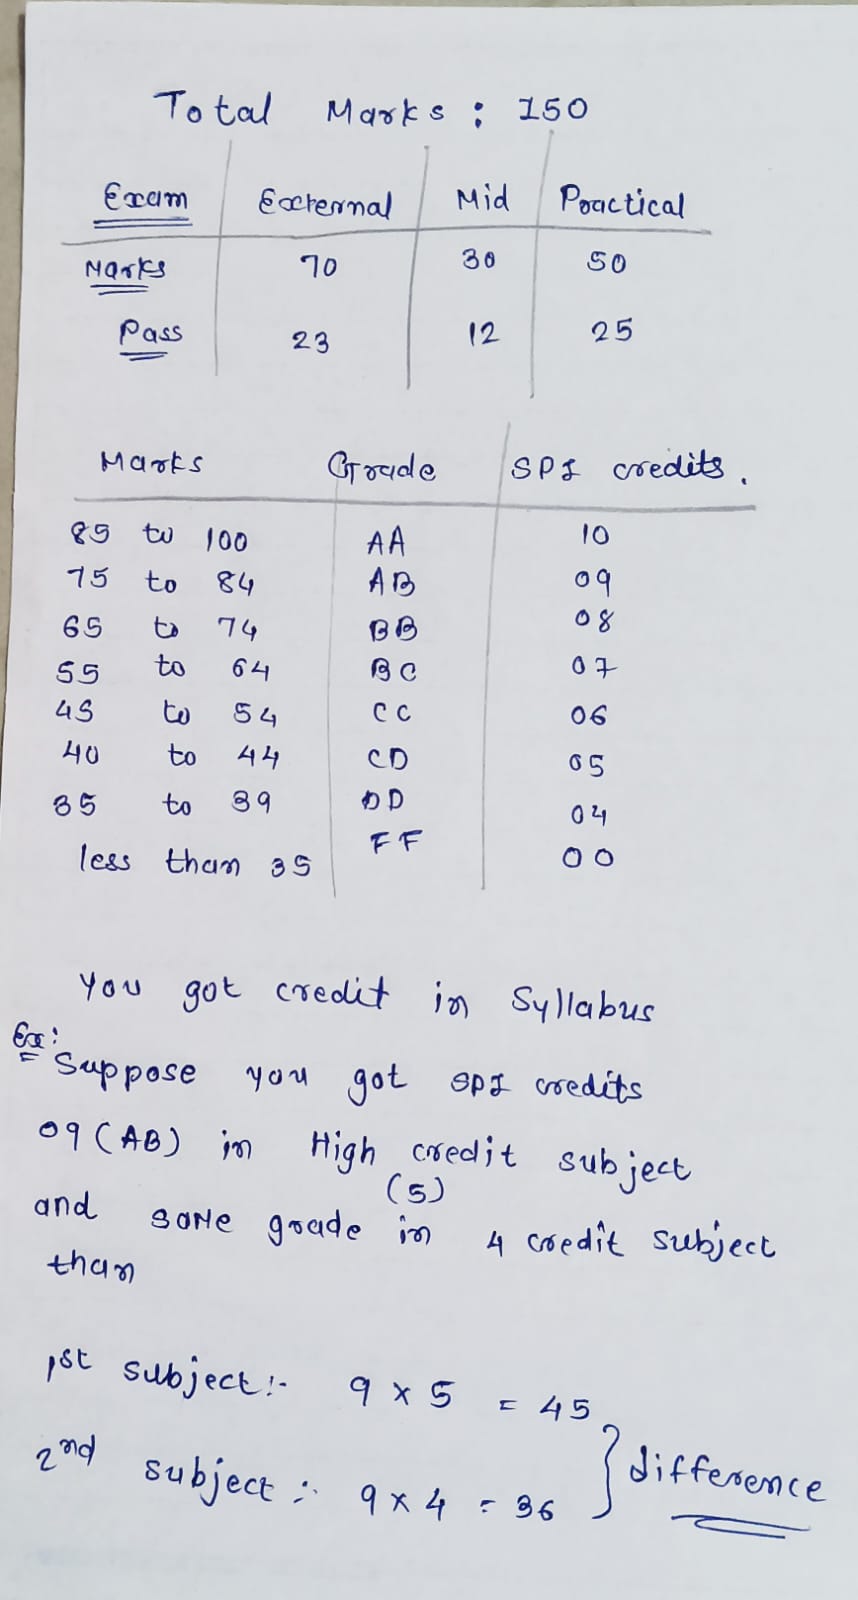 Total Marks : 150
Exam External Mid Practical
Marks 70 30 50
Pass 23 12 25
Marks Grade SPI credits.
85 to 100 AA 10
75 to 84 AB 09
65 to 74 BB 08
55 to 64 BC 07
45 to 54 CC 06
40 to 44 CD 05
35 to 39 DD 04
less than 35 FF 00
You got credit in Syllabus
Ex:
Suppose you got SPI credits
09 (AB) in High credit subject
(5)
and same grade in 4 credit subject
than
1st subject :- 9 x 5 = 45
2nd subject :- 9 x 4 = 36 } difference